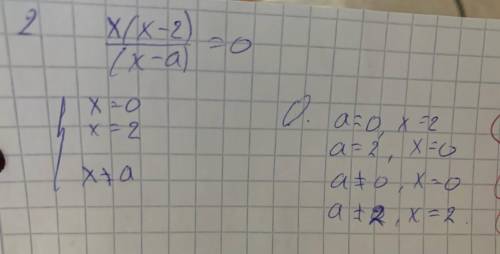 2
x(x-2)
(x-a) =0
{ x=0
x=2
x≠a
О. a=0, x=2
a=2, x=0
a≠0, x=0
a≠2, x=2.